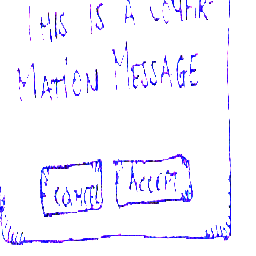 THIS IS A CONFIR-
MATION MESSAGE
CANCEL
ACCEPT